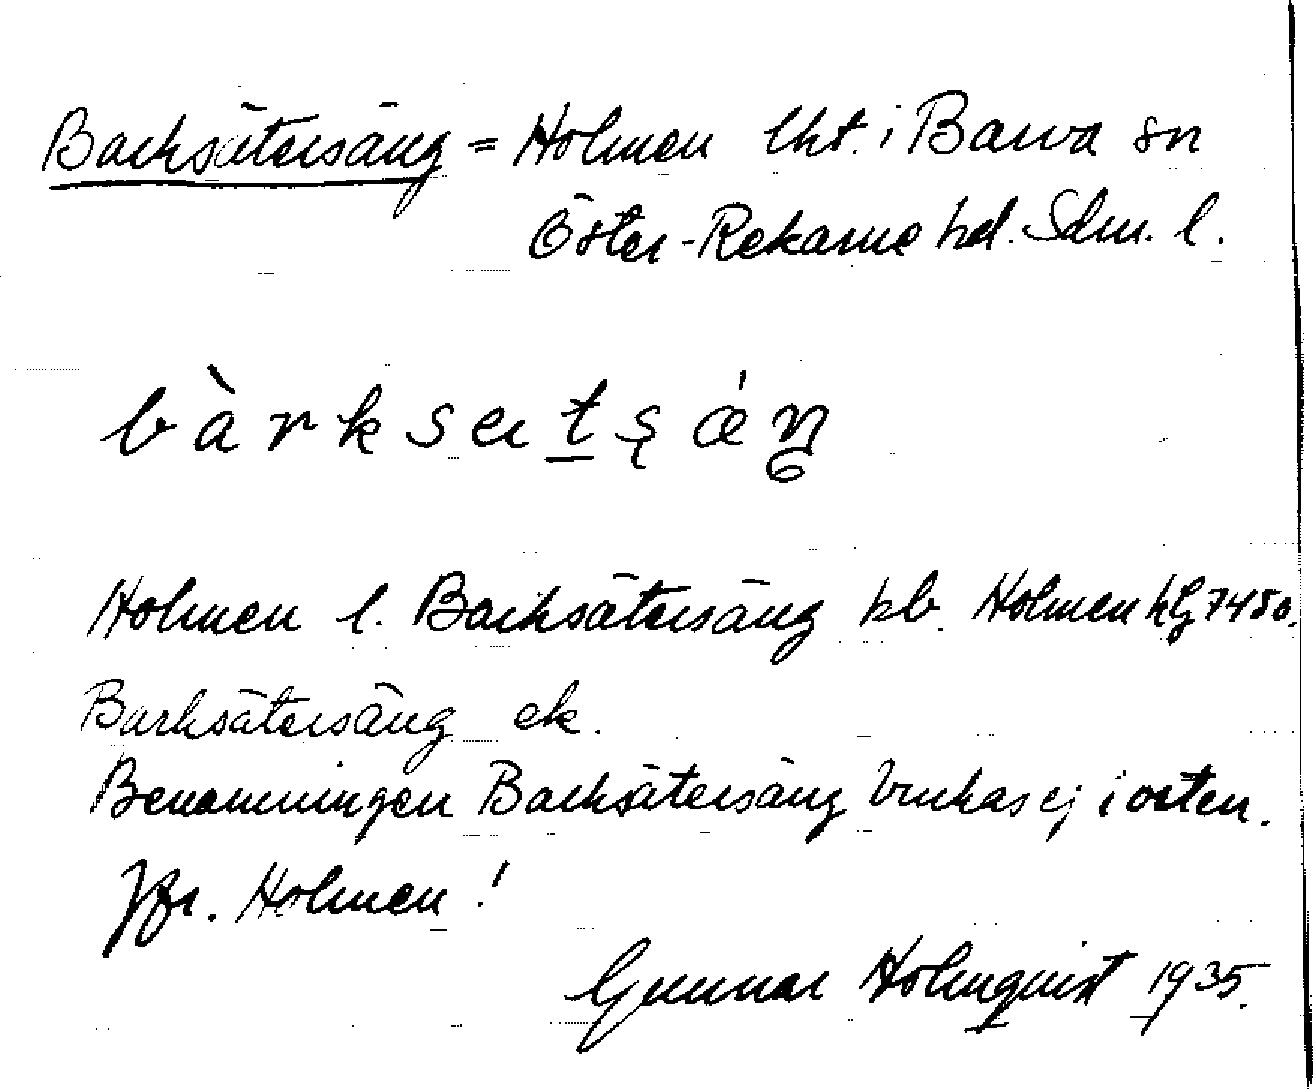 Barksätersäng = Holmen lht. i Barva sn
Öster-Rekarne hd. Sdm. l.
bàrksetsǽŋ
Holmen l. Barksätersäng kb. Holmen hfl 7450.
Barksätersäng ek.
Benämningen Barksätersäng brukas ej i orten.
Jfr. Holmen!
Gunnar Holmquist 1935.